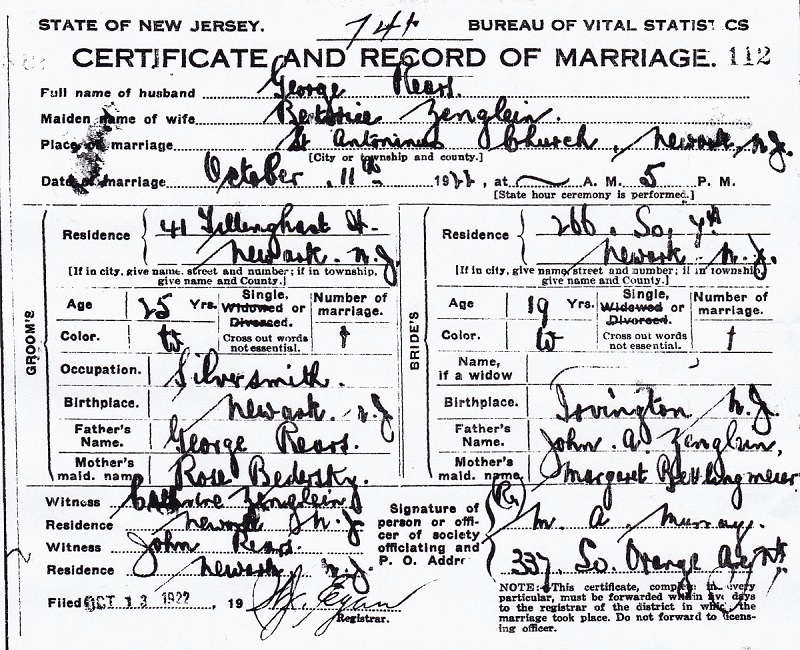 STATE OF NEW JERSEY. 74+ BUREAU OF VITAL STATISTICS
CERTIFICATE AND RECORD OF MARRIAGE. 112
Full name of husband George Rears.
Maiden name of wife Zenglein.
Place of marriage St Antoninus Church, Newark, N.J.
[City or township and county.]
Date of marriage October 11th 1922, at A. M. 5 P. M.
[State hour ceremony is performed.]
GROOM'S
Residence 41 Tillinghast St.
Newark. N.J.
[If in city, give name, street and number; if in township, give name and County.]
Age 25 Yrs. Single, Widowed or Divorced. Number of marriage.
Color. W Cross out words not essential. 1
Occupation. Silversmith.
Birthplace. Newark. N.J
Father's Name. George Rears.
Mother's maid. name Rose Bedersky.
BRIDE'S
Residence 266. So. 7th
Newark N.J.
[If in city, give name, street and number; if in township, give name and County.]
Age 19 Yrs. Single, Widowed or Divorced. Number of marriage.
Color. W Cross out words not essential. 1
Name, if a widow
Birthplace. Irvington N.J.
Father's Name. John. A. Zenglein.
Mother's maid. name Margaret
Witness Zenglein
Residence Newark N.J.
Witness John Rears.
Residence Newark N.J.
Signature of person or officer of society officiating and P. O. Addr
M. A. Murray.
337. So. Orange Ave
Filed OCT 13 1922, 19 Egan
Registrar.
NOTE:—This certificate, complete in every
particular, must be forwarded within five days
to the registrar of the district in which the
marriage took place. Do not forward to licens-
ing officer.